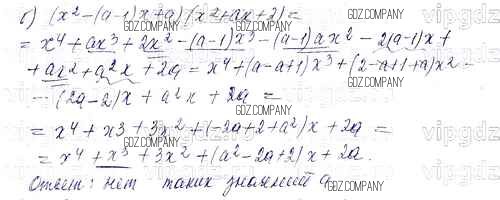 б) (x² - (a-1)x + a)(x² + ax + 2) =
= x⁴ + ax³ + 2x² - (a-1)x³ - (a-1)ax² - 2(a-1)x +
+ ax² + a²x + 2a = x⁴ + (a-a+1)x³ + (2-a+1+a)x² -
- (2a-2)x + a²x + 2a =
= x⁴ + x³ + 3x² + (-2a+2+a²)x + 2a =
= x⁴ + x³ + 3x² + (a²-2a+2)x + 2a.
Ответ: нет таких значений a
GDZ.COMPANY
vipgdz